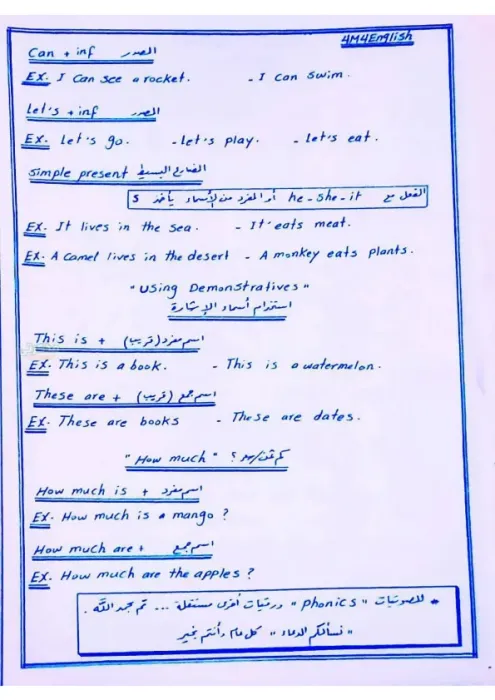 4M4English
Can + inf المصدر
EX. I can see a rocket. - I can swim.
Let's + inf المصدر
EX. Let's go. - Let's play. - Let's eat.
Simple present المضارع البسيط
الفعل مع he - she - it أو المفرد من الأسماء يأخذ s
EX. It lives in the sea. - It eats meat.
EX. A camel lives in the desert - A monkey eats plants.
"Using Demonstratives"
استخدام أسماء الإشارة
This is + اسم مفرد (قريب)
EX. This is a book. - This is a watermelon.
These are + اسم جمع (قريب)
EX. These are books - These are dates.
"How much" كم ثمن/سعر ؟
How much is + اسم مفرد
EX. How much is a mango ?
How much are + اسم جمع
EX. How much are the apples ?
* للصوتيات "phonics" ورقيات أخرى مستقلة ... تم بحمد الله.
"نسألكم الدعاء" كل عام وأنتم بخير